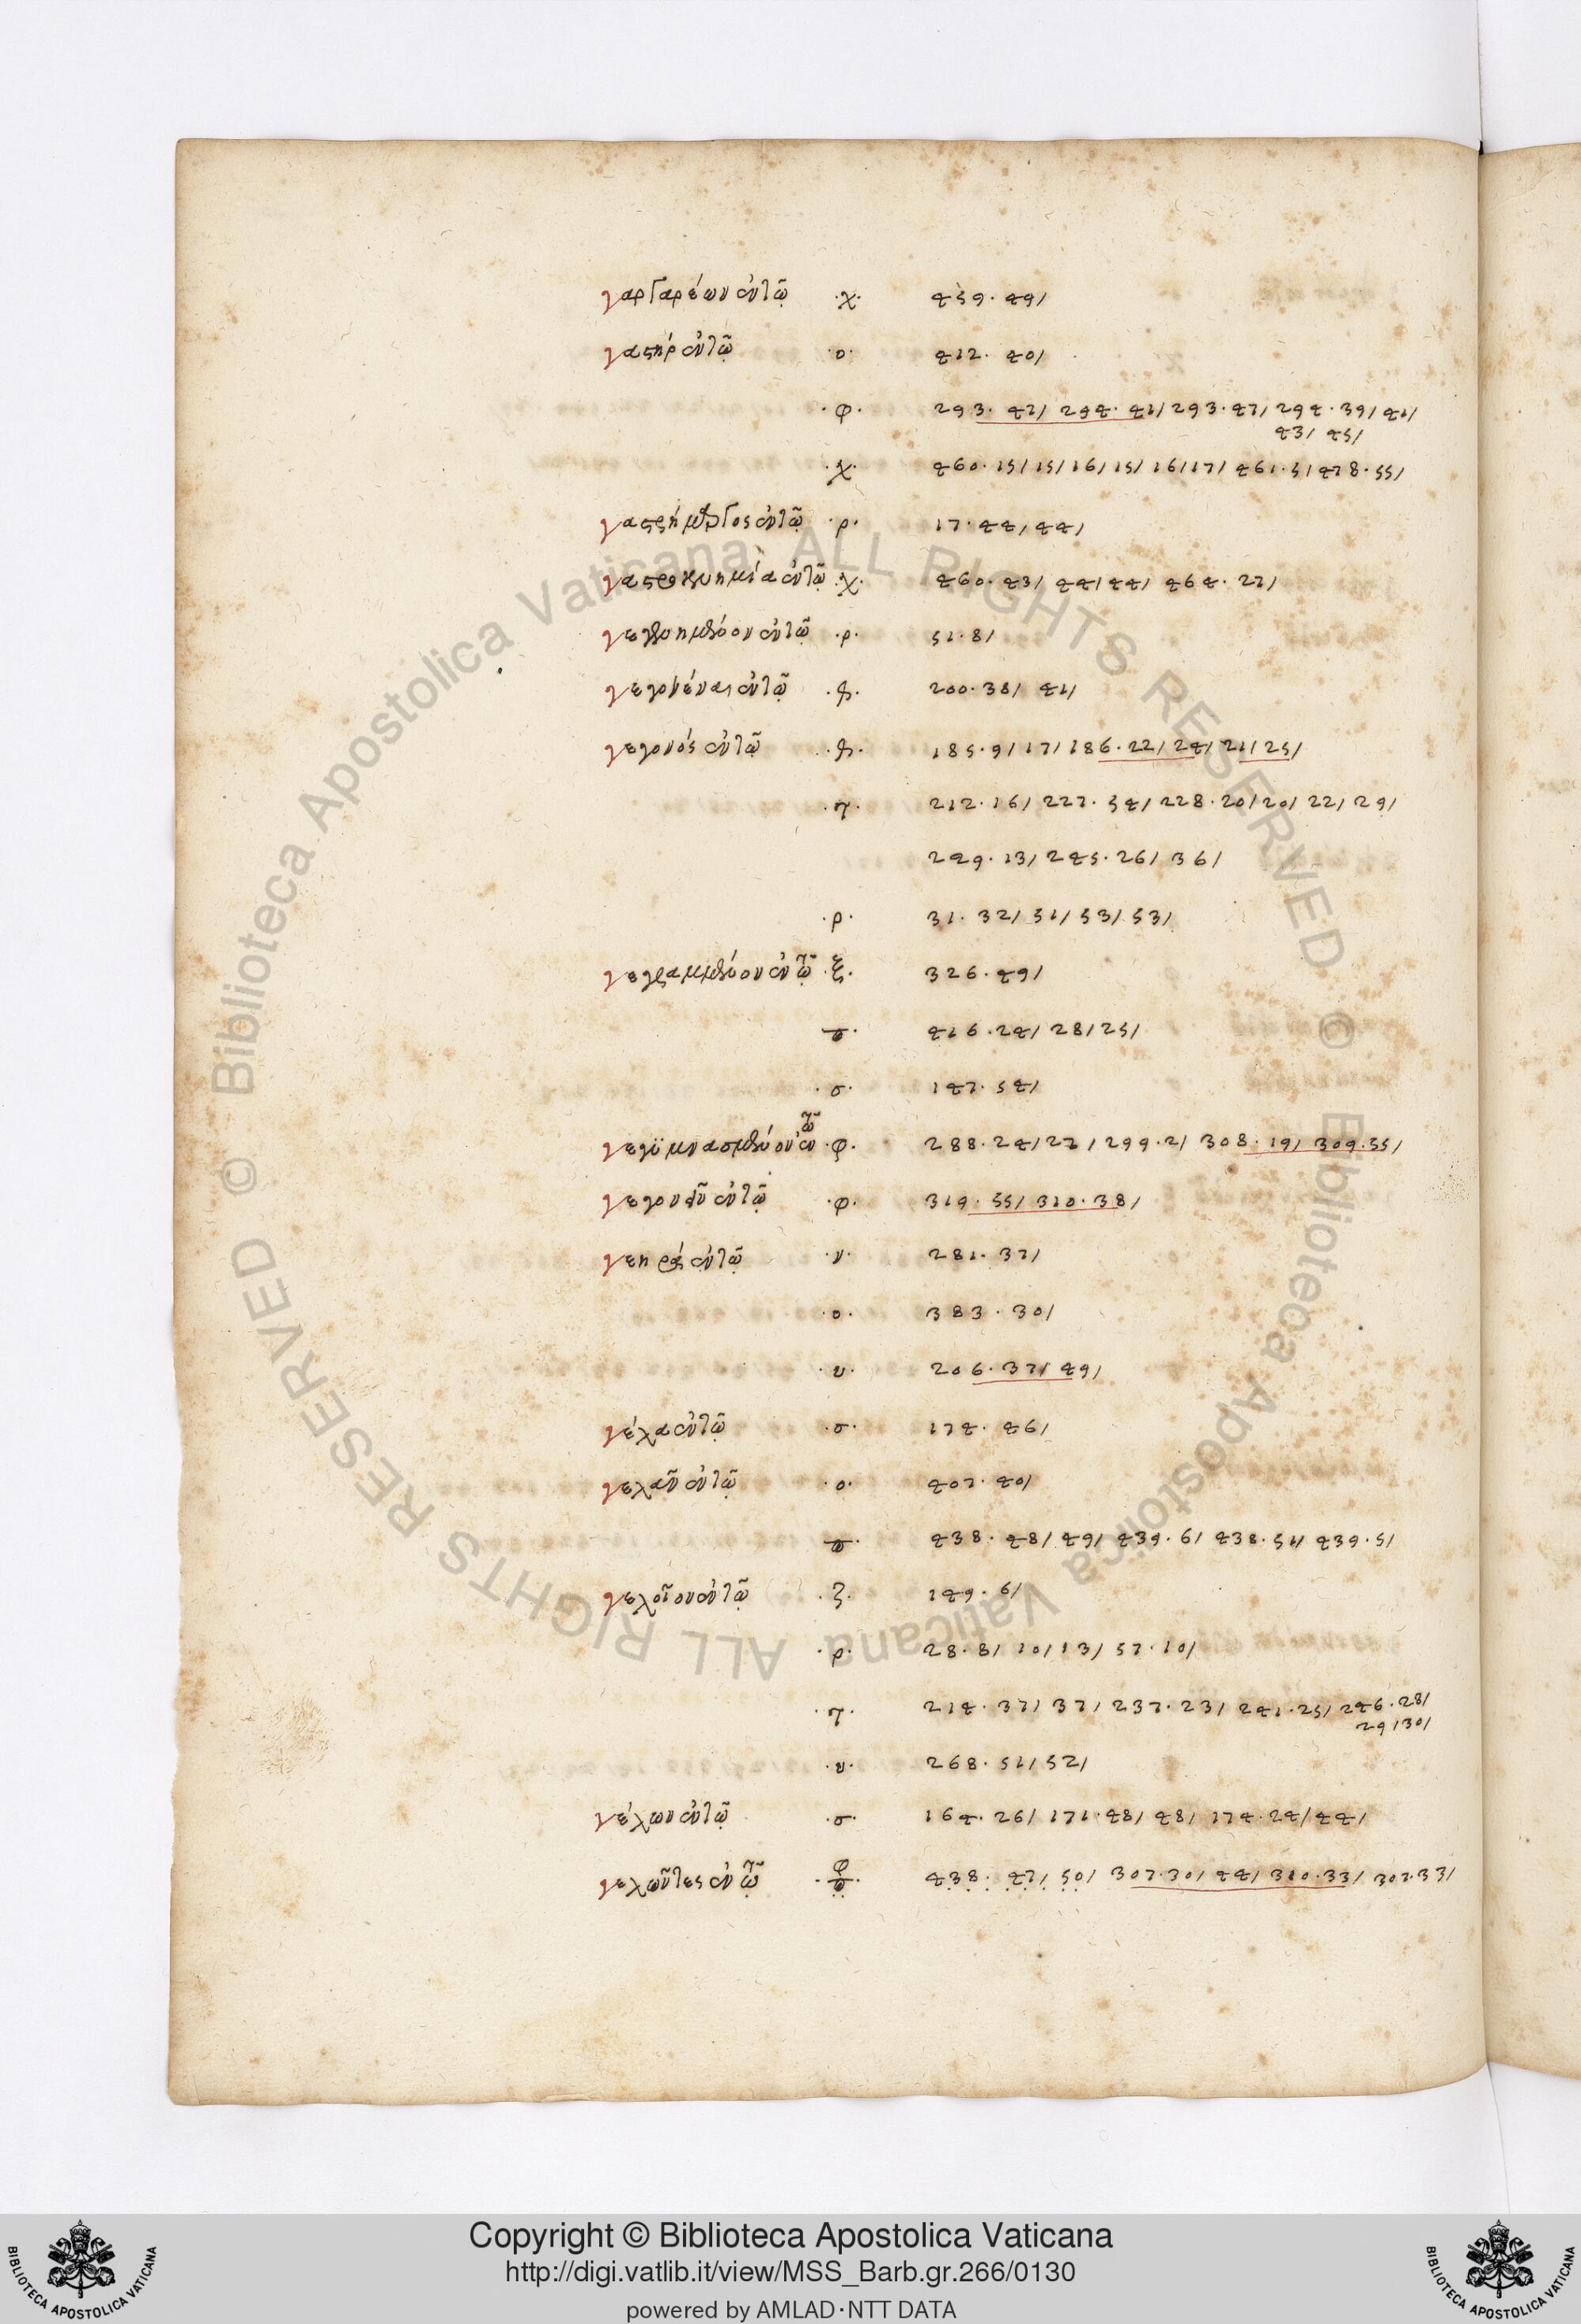 γαργαρέων ἐν τῷ ·χ· 459. 49/
γαστὴρ ἐν τῷ ·ο· 412. 40/
·φ· 293. 47/ 294. 41/ 293. 47/ 294. 39/ 41/
43/ 45/
·χ· 460. 15/ 15/ 16/ 15/ 16/ 17/ 461. 5/ 478. 55/
ἐν τῷ ·ρ· 17. 44/ 44/
ἐν τῷ ·χ· 460. 43/ 44/ 44/ 464. 27/
ἐν τῷ ·ρ· 51. 8/
γεγονέναι ἐν τῷ 200. 38/ 41/
γεγονός ἐν τῷ 185. 9/ 17/ 186. 22/ 24/ 21/ 25/
·τ· 212. 16/ 227. 54/ 228. 20/ 20/ 22/ 29/
249. 13/ 245. 26/ 36/
·ρ· 31. 32/ 51/ 53/ 53/
γεγραμμένον ἐν τῷ ·ξ· 326. 49/
416. 24/ 28/ 25/
·σ· 147. 54/
γεγυμνασμένον ἐν τῷ ·φ· 288. 24/ 27/ 299. 2/ 308. 19/ 309. 55/
ἐν τῷ ·φ· 319. 55/ 310. 38/
ἐν τῷ ·ν· 281. 37/
·ο· 383. 30/
·υ· 206. 37/ 49/
γέλα ἐν τῷ ·σ· 174. 46/
γελᾶν ἐν τῷ ·ο· 407. 40/
438. 48/ 49/ 439. 6/ 438. 51/ 439. 5/
γελοῖον ἐν τῷ ·ζ· 149. 6/
·ρ· 28. 8/ 10/ 13/ 57. 10/
·τ· 214. 37/ 37/ 237. 23/ 241. 25/ 246. 28/
29/ 30/
·υ· 268. 51/ 52/
γέλων ἐν τῷ ·σ· 164. 26/ 171. 48/ 48/ 174. 24/ 44/
γελῶντες ἐν τῷ φ 438. 47/ 50/ 307. 30/ 44/ 310. 33/ 307. 33/
© Biblioteca Apostolica Vaticana ALL RIGHTS RESERVED © Biblioteca Apostolica Vaticana ALL RIGHTS RESERVED
Copyright © Biblioteca Apostolica Vaticana
http://digi.vatlib.it/view/MSS_Barb.gr.266/0130
powered by AMLAD·NTT DATA
BIBLIOTECA APOSTOLICA VATICANA
BIBLIOTECA APOSTOLICA VATICANA